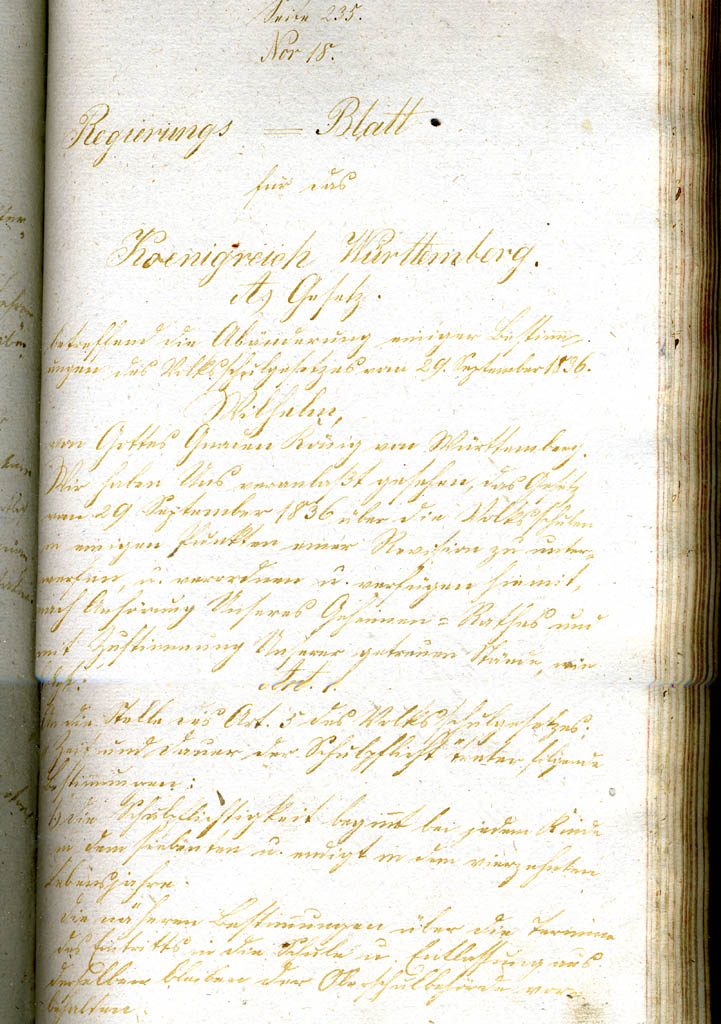 Seite 235.
Nor 18.
Regierungs = Blatt.
für das
Koenigreich Württemberg.
A) Gesetz.
betreffend die Abänderung einiger Bestimm-
ungen des Volksschulgesetzes vom 29. September 1836.
Wilhelm,
von Gottes Gnaden König von Württemberg.
Wir haben Uns veranlaßt gesehen, das Gesetz
vom 29 September 1836 über die Volksschulen
in einigen Punkten einer Revision zu unter-
werfen, u. verordnen u. verfügen hiemit,
nach Anhörung Unseres Geheimen = Rathes und
mit Zustimmung Unserer getreuen Stände, wie
folgt:
Art. 1.
An die Stelle des Art. 5 des Volksschulgesetzes,
Zeit und Dauer der Schulpflicht treten folgende
Bestimmungen:
1) die Schulpflichtigkeit beginnt bei jedem Kinde
in dem siebenten u. endigt in dem vierzehnten
Lebensjahre.
die näheren Bestimmungen über die Termine
des Eintritts in die Schule u. Entlassung aus
derselben bleiben der Oberschulbehörde vor-
behalten.